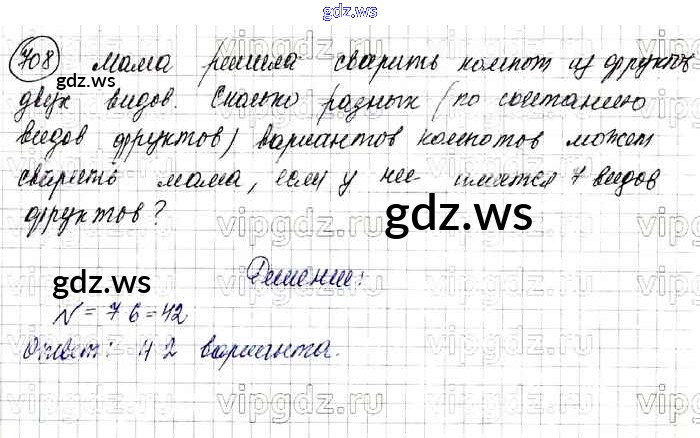 gdz.ws
708 Мама решила сварить компот из фруктов
двух видов. Сколько разных (по сочетанию
видов фруктов) вариантов компотов может
сварить мама, если у нее имеется 7 видов
фруктов?
gdz.ws
gdz.ws
Решение:
gdz.ws
N = 7 6 = 42
Ответ: 42 варианта.
vipgdz.ru vipgdz.ru vipgdz.ru